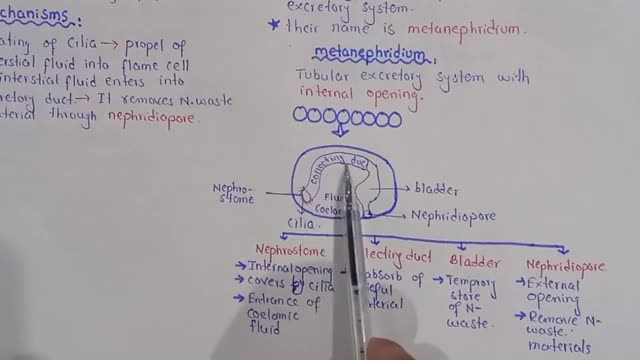 chanisms:
ating of Cilia → propel of
rstial fluid into flame cell
interstial fluid enters into
retory duct → It removes N-waste
terial through nephridiopore.
excretory system.
* their name is metanephridium.
metanephridium,
Tubular excretory system with
internal opening.
collecting duct
Nephro-
stome
Flui
Coelo
cilia.
bladder
Nephridiopore
Nephrostome
→ Internal opening
→ covers by cilia
→ Entrance of
coelomic
fluid
llecting duct
absorb of
seful
terial
Bladder
→ Temprory
store
of N-
waste.
Nephridiopore
→ External
opening
→ Remove N-
waste.
materials